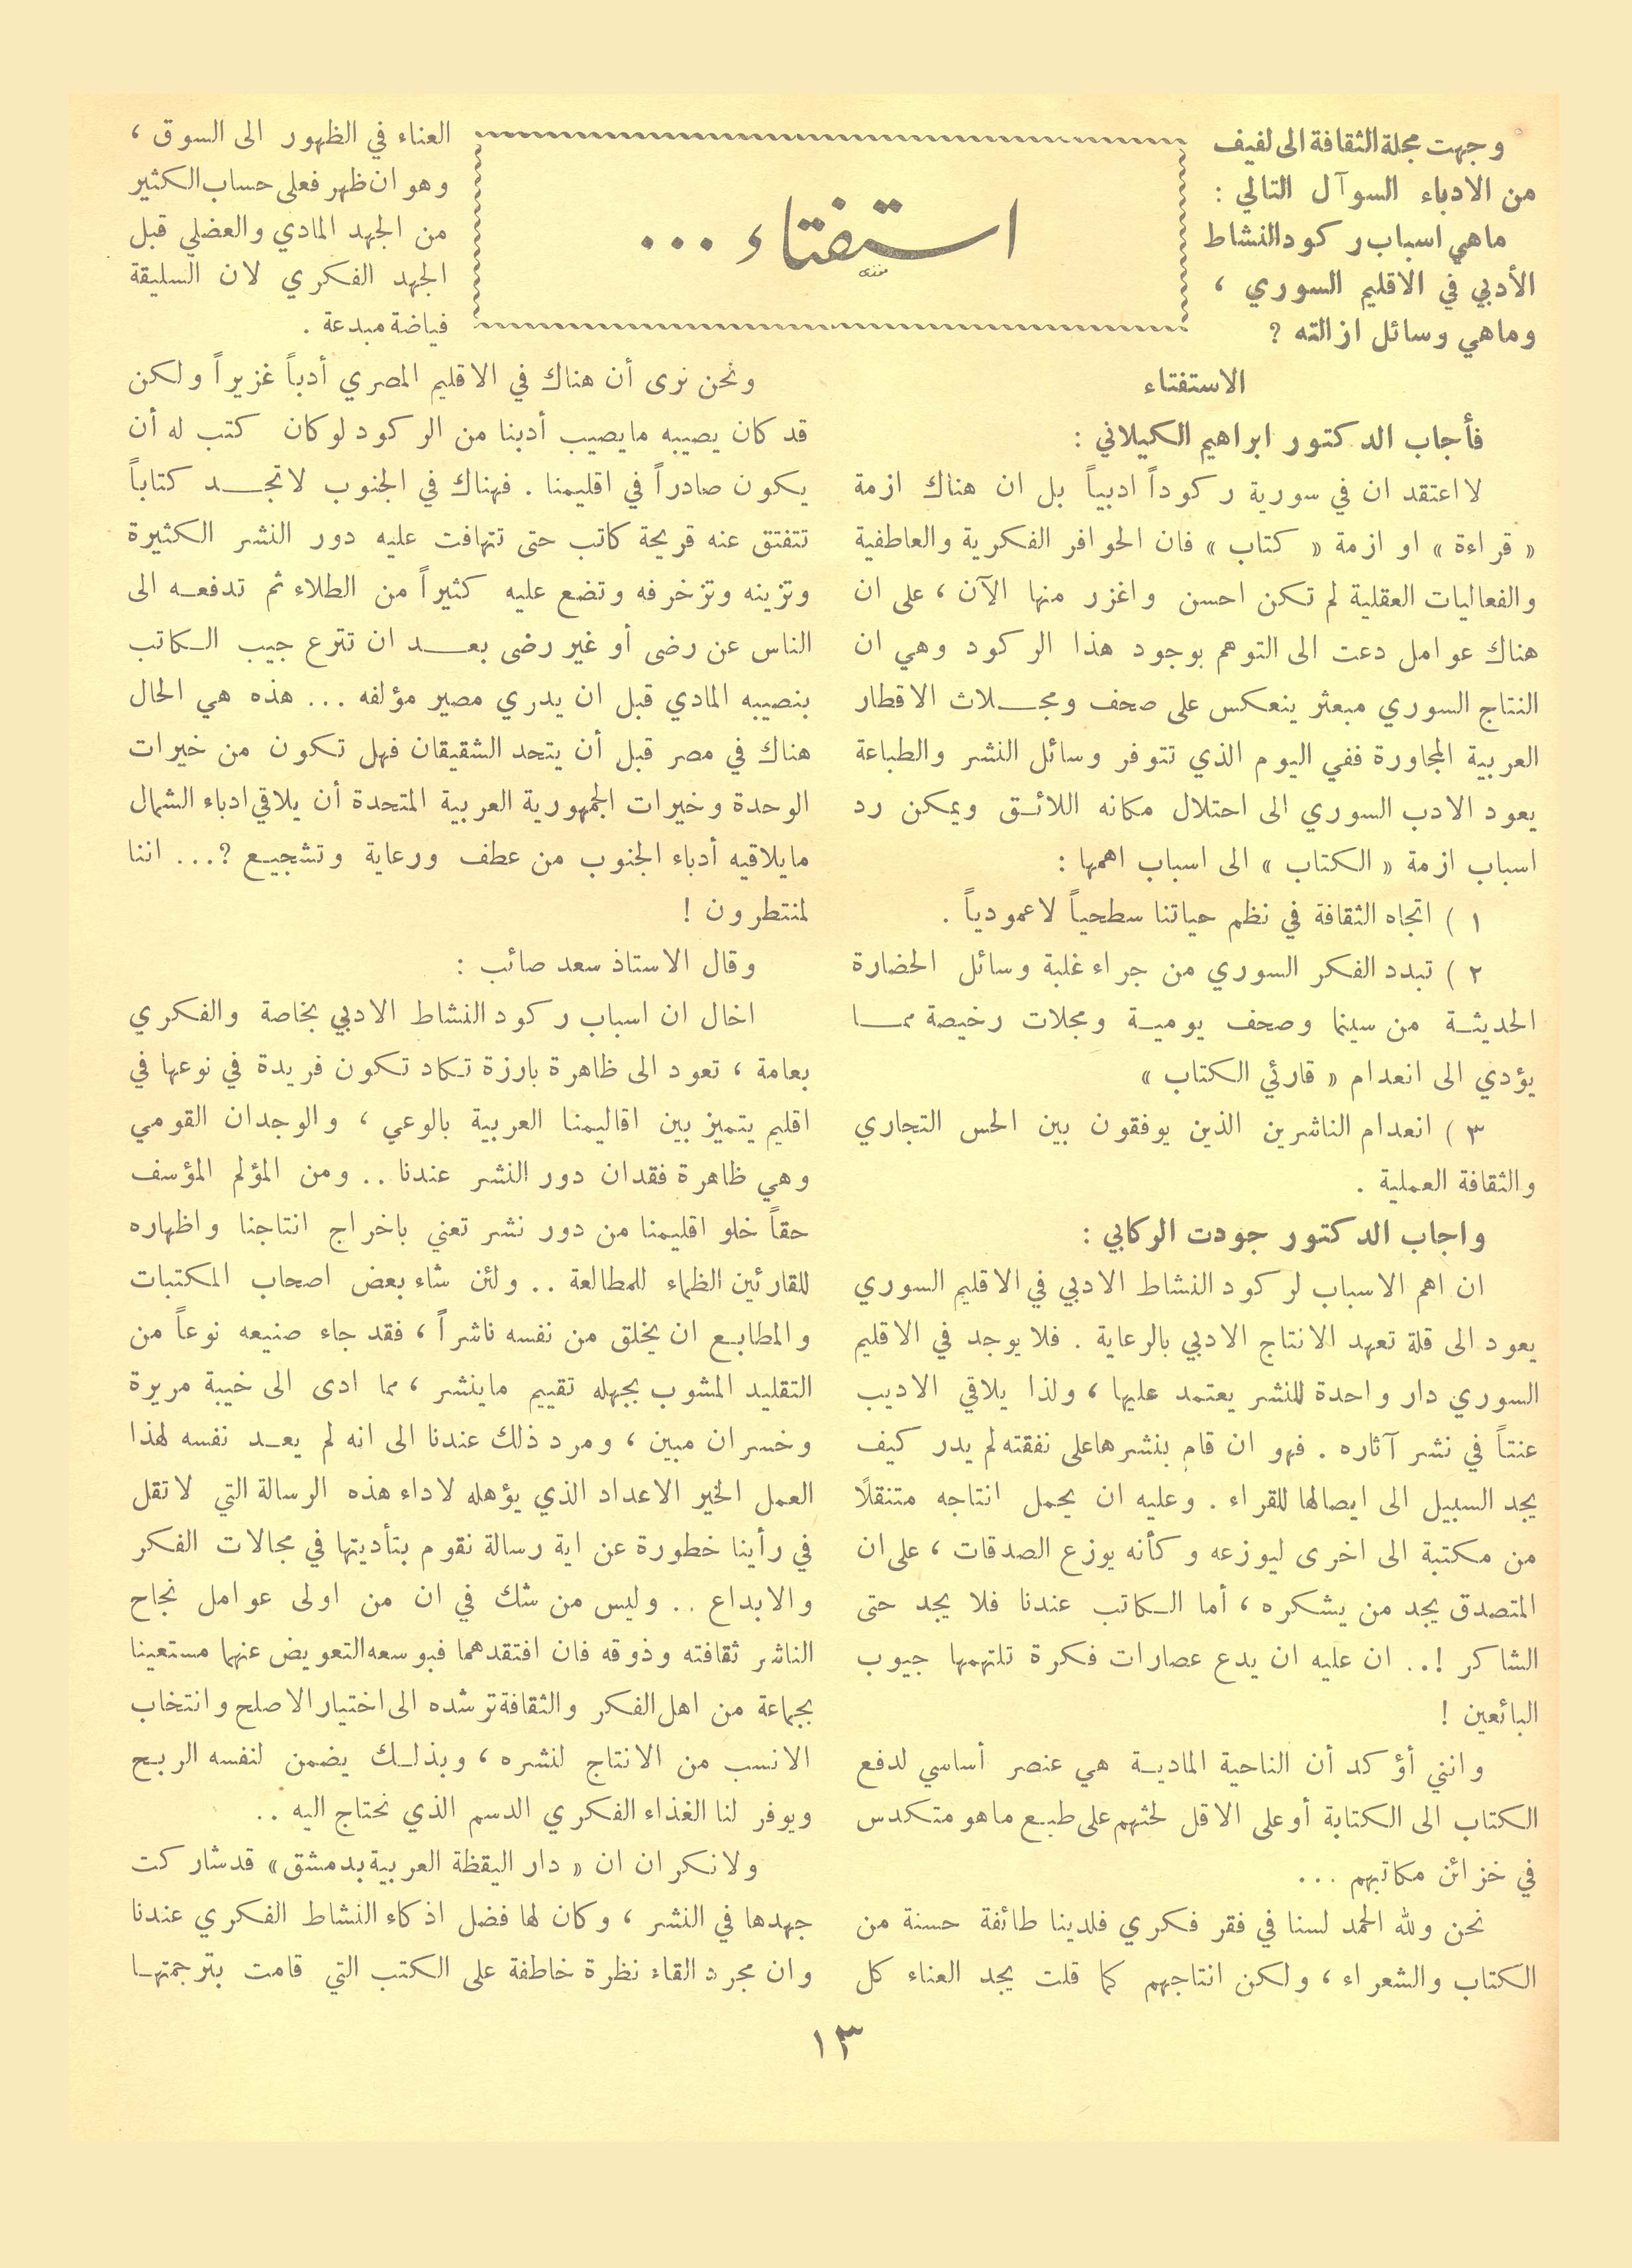 استفتاء ...
وجهت مجلة الثقافة الى لفيف
من الادباء السوآل التالي :
ماهي اسباب ركود النشاط
الأدبي في الاقليم السوري ،
وماهي وسائل ازالته ؟
الاستفتاء
فأجاب الدكتور ابراهيم الكيلاني :
لا اعتقد ان في سورية ركوداً ادبياً بل ان هناك ازمة
« قراءة » او ازمة « كتاب » فان الحوافر الفكرية والعاطفية
والفعاليات العقلية لم تكن احسن واغزر منها الآن ، على ان
هناك عوامل دعت الى التوهم بوجود هذا الركود وهي ان
النتاج السوري مبعثر ينعكس على صحف ومجلات الاقطار
العربية المجاورة ففي اليوم الذي تتوفر وسائل النشر والطباعة
يعود الادب السوري الى احتلال مكانه اللائق ويمكن رد
اسباب ازمة « الكتاب » الى اسباب اهمها :
١ ) اتجاه الثقافة في نظم حياتنا سطحياً لاعمودياً .
٢ ) تبدد الفكر السوري من جراء غلبة وسائل الحضارة
الحديثة من سينما وصحف يومية ومجلات رخيصة مما
يؤدي الى انعدام « قارئي الكتاب »
٣ ) انعدام الناشرين الذين يوفقون بين الحس التجاري
والثقافة العملية .
واجاب الدكتور جودت الركابي :
ان اهم الاسباب لركود النشاط الادبي في الاقليم السوري
يعود الى قلة تعهد الانتاج الادبي بالرعاية . فلا يوجد في الاقليم
السوري دار واحدة للنشر يعتمد عليها ، ولذا يلاقي الاديب
عنتاً في نشر آثاره . فهو ان قام بنشرها على نفقته لم يدر كيف
يجد السبيل الى ايصالها للقراء . وعليه ان يحمل انتاجه متنقلاً
من مكتبة الى اخرى ليوزعه وكأنه يوزع الصدقات ، على ان
المتصدق يجد من يشكره ، أما الكاتب عندنا فلا يجد حتى
الشاكر !.. ان عليه ان يدع عصارات فكرة تلتهمها جيوب
البائعين !
وانني أؤكد أن الناحية المادية هي عنصر أساسي لدفع
الكتاب الى الكتابة أو على الاقل لحثهم على طبع ماهو متكدس
في خزائن مكاتبهم ...
نحن ولله الحمد لسنا في فقر فكري فلدينا طائفة حسنة من
الكتاب والشعراء ، ولكن انتاجهم كما قلت يجد العناء كل
العناء في الظهور الى السوق ،
وهو ان ظهر فعلى حساب الكثير
من الجهد المادي والعضلي قبل
الجهد الفكري لان السليقة
فياضة مبدعة .
ونحن نرى أن هناك في الاقليم المصري أدباً غزيراً ولكن
قد كان يصيبه مايصيب أدبنا من الركود لو كان كتب له أن
يكون صادراً في اقليمنا . فهناك في الجنوب لا تجد كتاباً
تتفتق عنه قريحة كاتب حتى تتهافت عليه دور النشر الكثيرة
وتزينه وتزخرفه وتضع عليه كثيراً من الطلاء ثم تدفعه الى
الناس عن رضى أو غير رضى بعد ان تترع جيب الكاتب
بنصيبه المادي قبل ان يدري مصير مؤلفه ... هذه هي الحال
هناك في مصر قبل أن يتحد الشقيقان فهل تكون من خيرات
الوحدة وخيرات الجمهورية العربية المتحدة أن يلاقي ادباء الشمال
مايلاقيه أدباء الجنوب من عطف ورعاية وتشجيع ؟... اننا
لمنتطرون !
وقال الاستاذ سعد صائب :
اخال ان اسباب ركود النشاط الادبي بخاصة والفكري
بعامة ، تعود الى ظاهرة بارزة تكاد تكون فريدة في نوعها في
اقليم يتميز بين اقاليمنا العربية بالوعي ، والوجدان القومي
وهي ظاهرة فقدان دور النشر عندنا .. ومن المؤلم المؤسف
حقاً خلو اقليمنا من دور نشر تعني باخراج انتاجنا واظهاره
للقارئين الظماء للمطالعة .. ولئن شاء بعض اصحاب المكتبات
والمطابع ان يخلق من نفسه ناشراً ، فقد جاء صنيعه نوعاً من
التقليد المشوب بجهله تقييم ماينشر ، مما ادى الى خيبة مريرة
وخسران مبين ، ومرد ذلك عندنا الى انه لم يعد نفسه لهذا
العمل الخير الاعداد الذي يؤهله لاداء هذه الرسالة التي لا تقل
في رأينا خطورة عن اية رسالة نقوم بتأديتها في مجالات الفكر
والابداع .. وليس من شك في ان من اولى عوامل نجاح
الناشر ثقافته وذوقه فان افتقدهما فبوسعه التعويض عنهما مستعينا
بجماعة من اهل الفكر والثقافة ترشده الى اختيار الاصلح وانتخاب
الانسب من الانتاج لنشره ، وبذلك يضمن لنفسه الربح
ويوفر لنا الغذاء الفكري الدسم الذي نحتاج اليه ..
ولا نكران ان « دار اليقظة العربية بدمشق » قد شاركت
جهدها في النشر ، وكان لها فضل اذكاء النشاط الفكري عندنا
وان مجرد القاء نظرة خاطفة على الكتب التي قامت بترجمتها
١٣